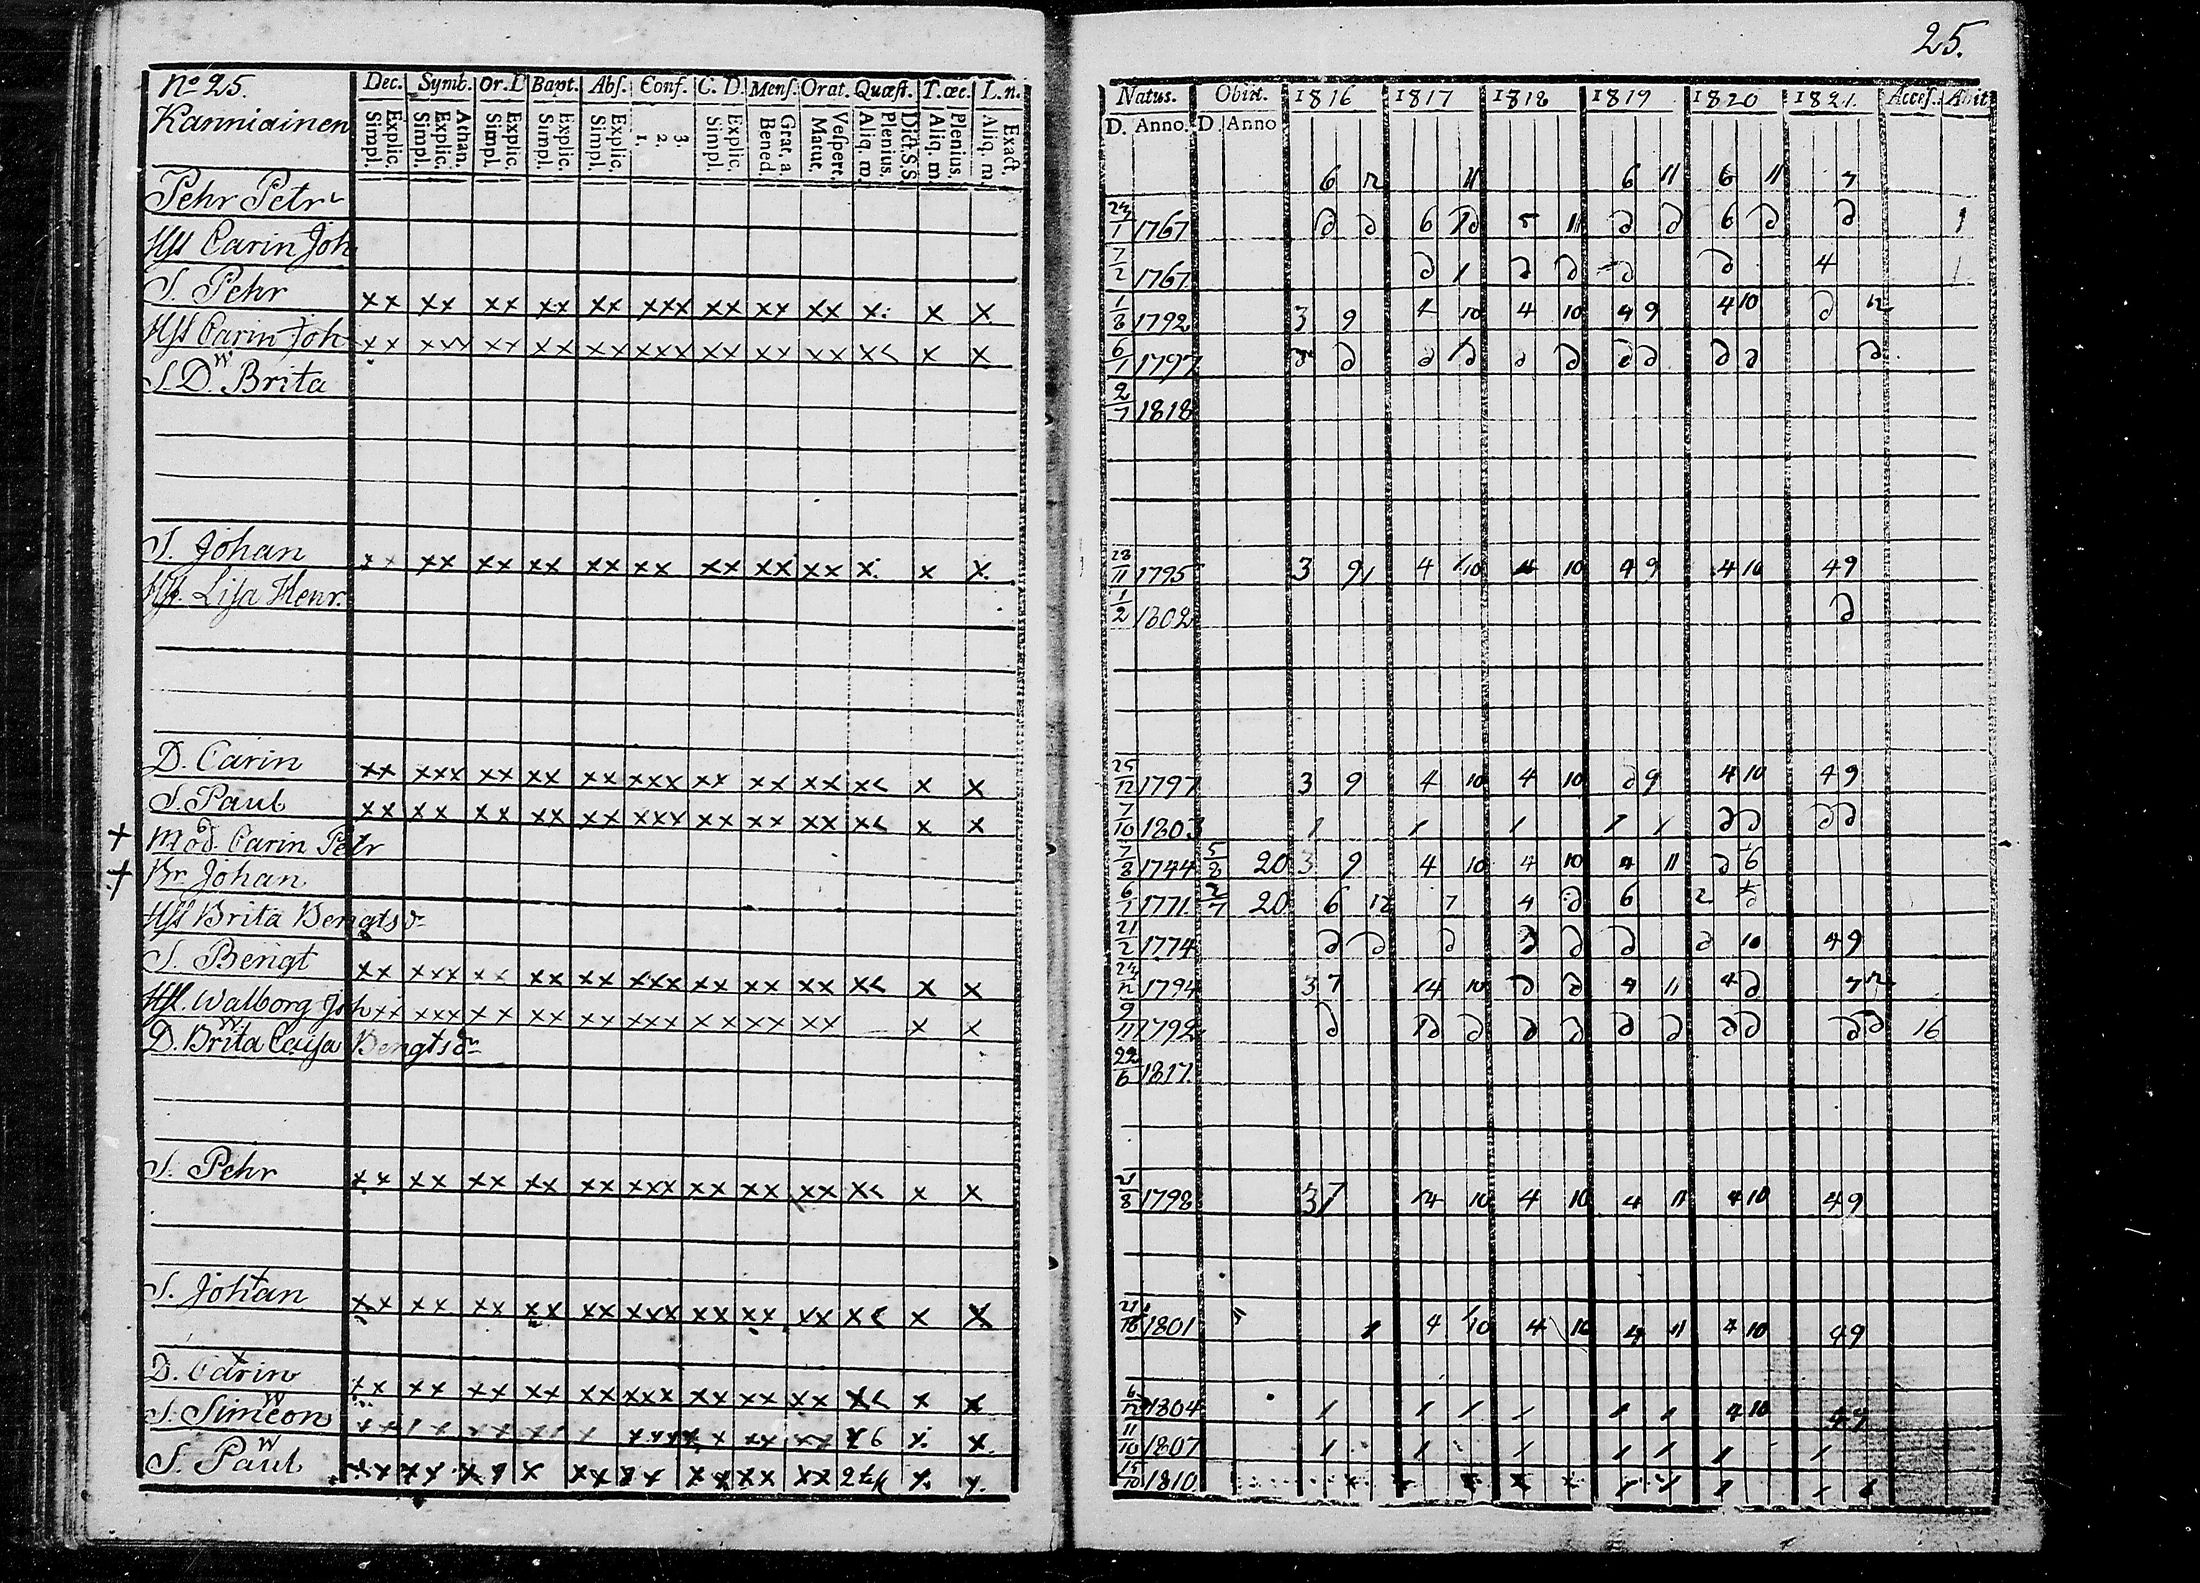 25.
No 25.
Kanniainen
Dec. Symb. Or. D Bapt. Abs. Conf. C. D. Mens. Orat. Quæst. T. œc. L. n.
Explic. Simpl.
Athan. Explic. Simpl.
Explic. Simpl.
Explic. Simpl.
Explic. Simpl.
3. 2. 1.
Explic. Simpl.
Grat. a. Bened
Vespere. Matut.
Dict. S. S. Plenius. Aliq. m.
Plenius. Aliq. m.
Exact. Aliq. m.
Natus. Obiit. 1816 1817 1818 1819 1820 1821. Acces. Abiit
D. Anno. D. Anno
6 12 11 6 11 6 11 7
Pehr Petr 24/1 1767
Hst Carin Joh 7/2 1767
S. Pehr xx xx xx xx xx xxx xx xx xx x. x x. 1/8 1792 3 9 4 10 4 10 4 9 4 10
Hst Carin Joh xx xxx xx xx xx xxx xx xx xx x< x x 6/1 1797
S. D. Brita 2/7 1818
S. Johan xx xx xx xx xx xx xx xx xx x. x x. 28/11 1795 3 9 4 10 4 10 4 9 4 10 4 9
Hst. Lisa Henr. 1/2 1802
D. Carin xx xxx xx xx xx xxx xx xx xx x< x x 25/12 1797 3 9 4 10 4 10 9 4 10 4 9
S. Paul xx xx xx xx xx xxx xx xx xx x< x x 7/10 1803
+ Mod. Carin Petr 7/8 1744 5/8 20 3 9 4 10 4 10 4 11 6
+ Br. Johan 6/1 1771. 2/7 20 6 12 7 4 6 2
Hst Brita Bengtsdr 21/2 1774 10 4 9
S. Bengt xx xxx xx xx xx xxx xx xx xx x< x x 24/12 1794 3 7 14 10 4 11 4 7 12
Hst. Walborg Joh xx xxx xx xx xx xxx xx xx xx x x 9/11 1792 16
D. Brita Caisa Bengtsdr 22/6 1817.
S. Pehr xx xx xx xx xx xxx xx xx xx x< x x 21/8 1798 3 7 14 10 4 10 4 11 4 10 4 9
S. Johan xx xx xx xx xx xxx xx xx xx x< x x 21/10 1801 4 10 4 10 4 11 4 10 4 9
D. Carin xx xx xx xx xx xxx xx xx xx x< x x 6/12 1804 4 10
S. Simeon 11/10 1807
S. Paul 15/10 1810